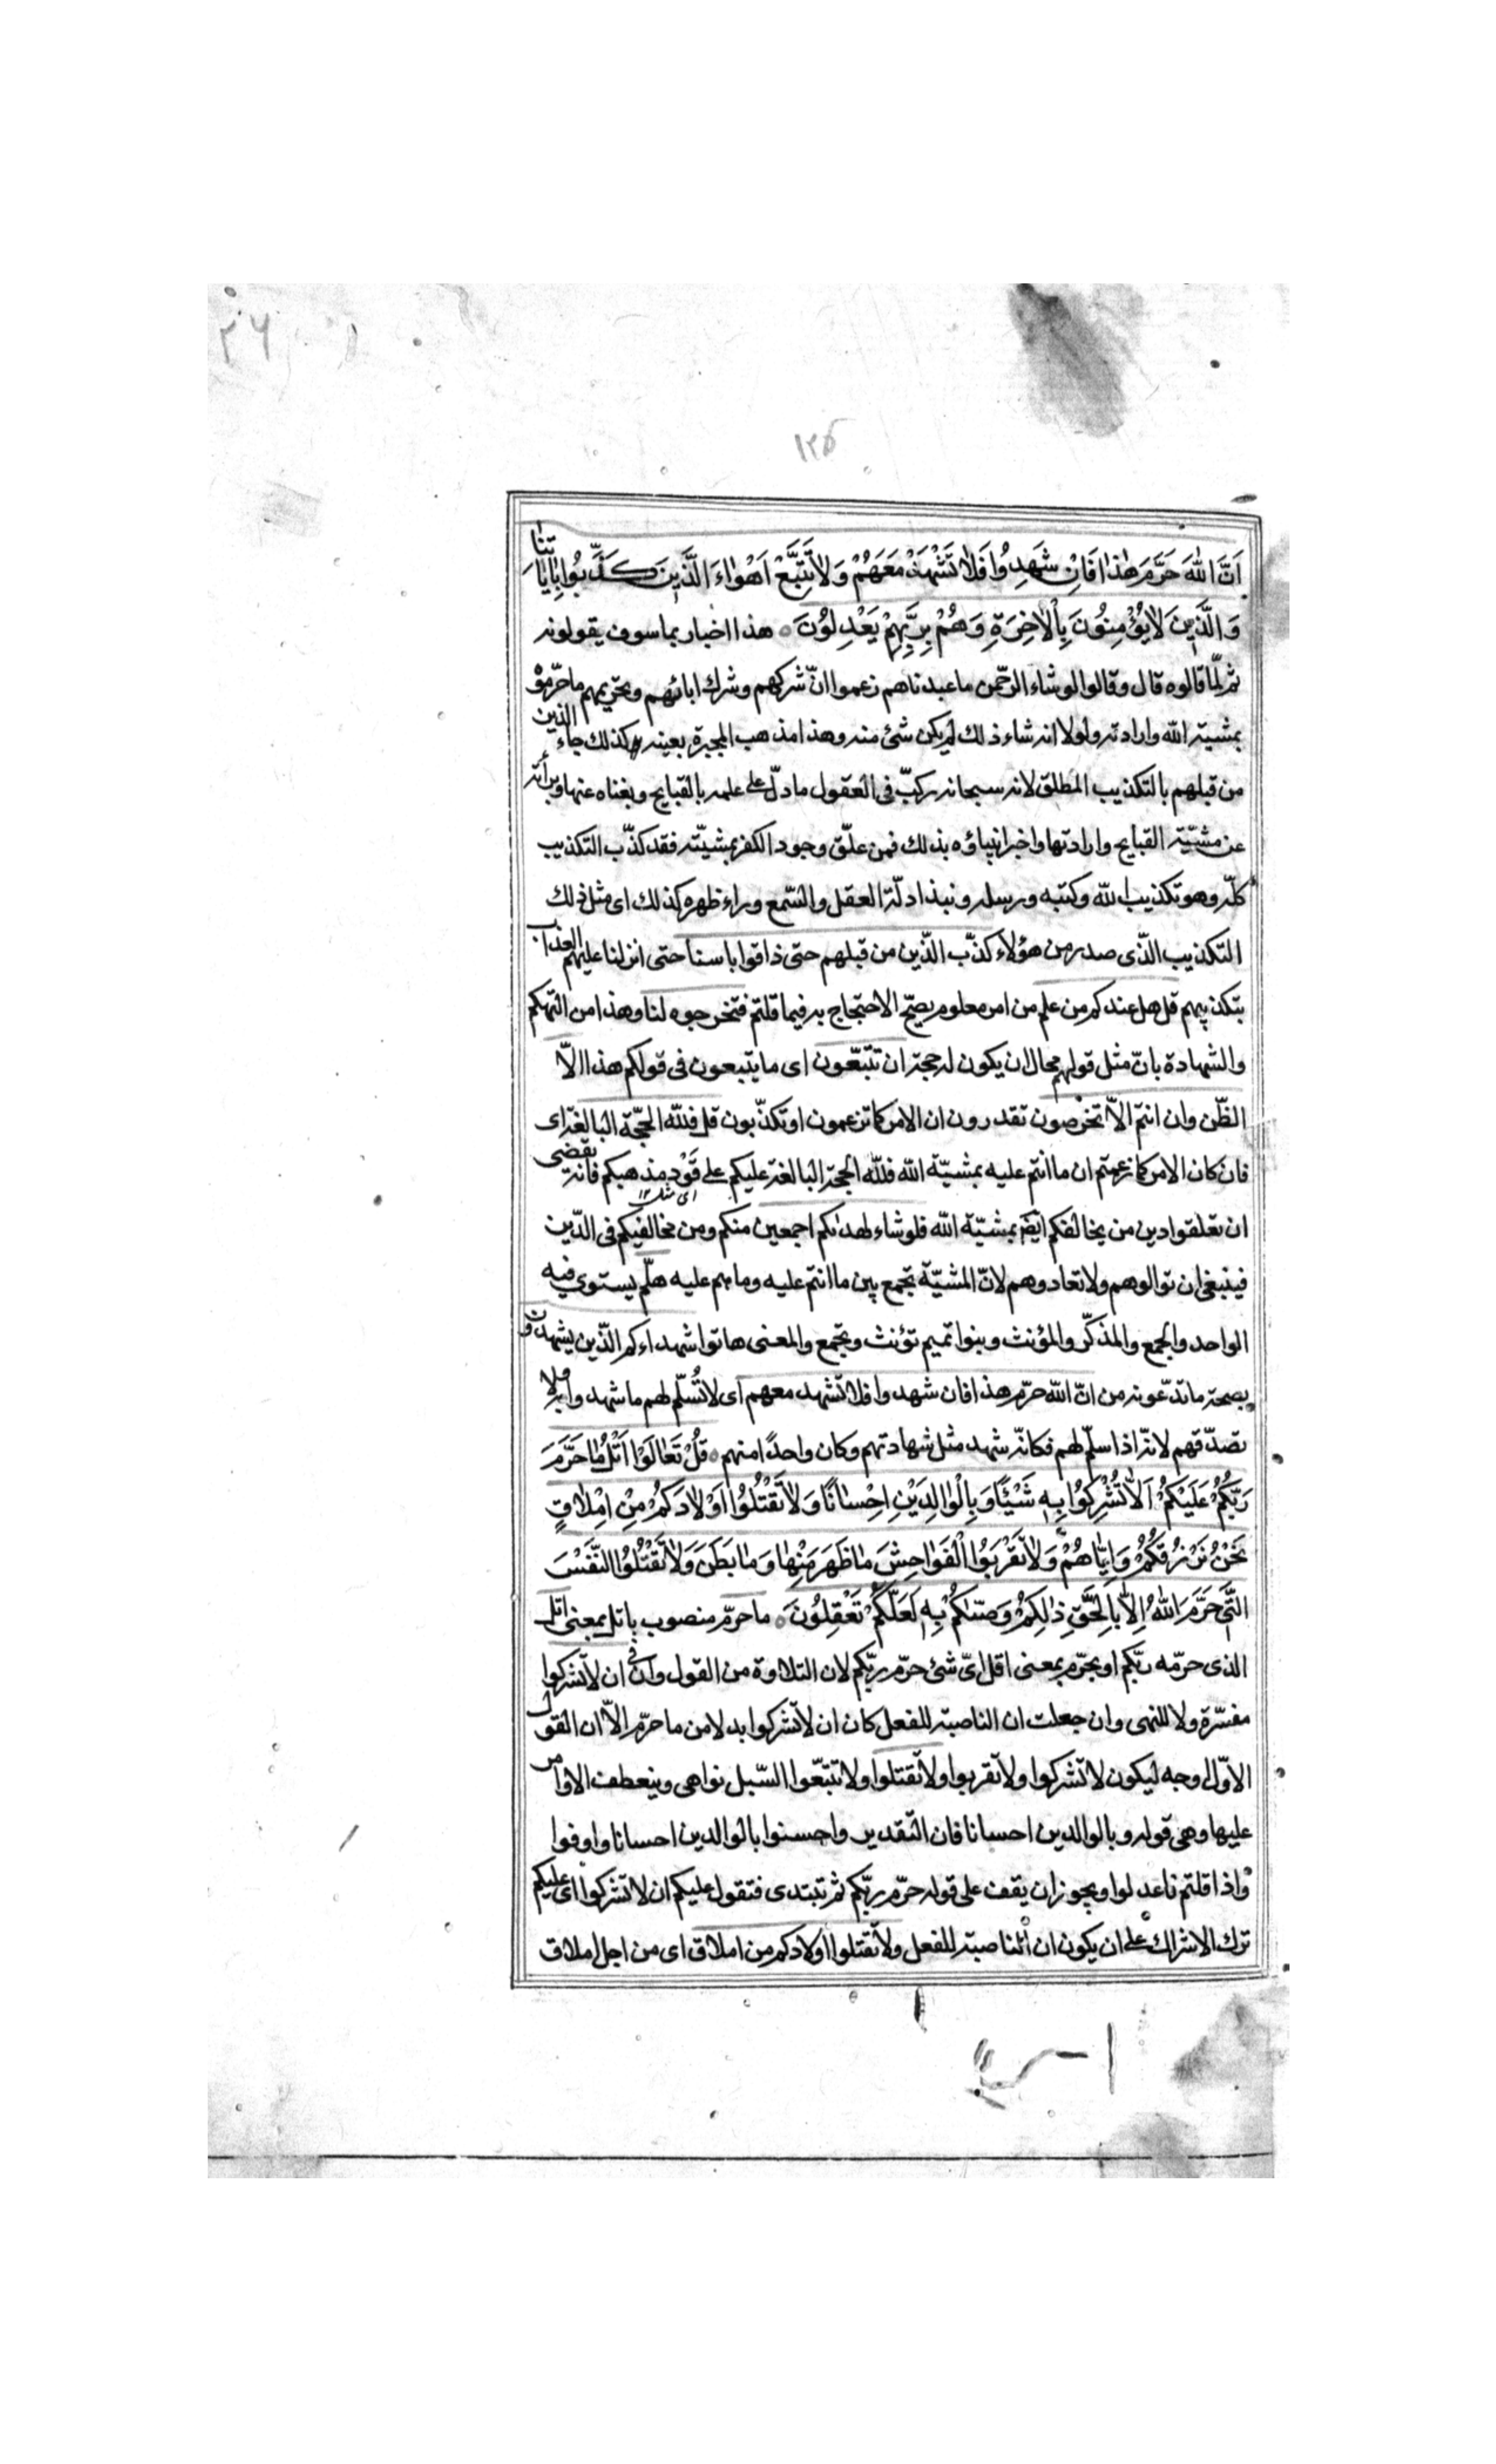 ٢٦
١٢٥
اَنَّ اللّٰهَ حَرَّمَ هٰذا فَاِنْ شَهِدُوا فَلا تَشْهَدْ مَعَهُمْ وَلا تَتَّبِعْ اَهْواءَ الَّذِينَ كَذَّبُوا بِاٰيٰاتِنٰا
وَالَّذِينَ لا يُؤْمِنُونَ بِالْاخِرَةِ وَهُمْ بِرَبِّهِمْ يَعْدِلُونَ ه هذا اخبار بما سوف يقولونه
ثم لمّا قالوه قال وقالوا لو شاء الرّحمن ما عبدناهم زعموا انّ شركهم وشرك ابائهم وتحريمهم ما حرّموه
بمشيته الله وارادته ولولا انه شاء ذلك لم يكن شئ منه وهذا مذهب المجبرة بعينه كذلك جاء الذين
من قبلهم بالتكذيب المطلق لانه سبحانه ركّب فى العقول ما دلّ على علمه بالقبايح وبغناه عنها وبرائته
عن مشيّته القبايح وارادتها واخبر انبياؤه بذلك فمن علّق وجود الكفر بمشيّته فقد كذّب التكذيب
كلّه وهو تكذيب الله وكتبه ورسله ونبذ ادلّة العقل والسّمع وراء ظهره كذلك اى مثل ذلك
التكذيب الّذى صدر من هؤلاء كذّب الّذين من قبلهم حتى ذاقوا باسنا حتى انزلنا عليهم العذاب
بتكذيبهم قل هل عندكم من علم من امر معلوم يصحّ الاحتجاج به فيما قلتم فتخرجوه لنا وهذا من التهكم
والشهادة بانّ مثل قولهم محال ان يكون له حجة ان تتّبعون اى ما يتبعون فى قولكم هذا الّا
الظّن وان انتم الّا تخرصون تقدرون ان الامر كما تزعمون او تكذّبون قل فللّه الحجّة البالغة اى
فان كان الامر كما زعمتم ان ما انتم عليه بمشيّة الله فللّه الحجة البالغة عليكم على قَوْد مذهبكم فانه يقضى
اى مثله ١٢
ان تعلقوا دين من يخالفكم ايضا بمشيّة الله فلو شاء لهدٰىكم اجمعين منكم ومن مخالفيكم فى الدّين
فينبغى ان توالوهم ولا تعادوهم لانّ المشيّة تجمع بين ما انتم عليه وما هم عليه هلّم يستوى فيه
الواحد والجمع والمذكّر والمؤنث وبنوا تميم تؤنث وتجمع والمعنى هاتوا شهداءكم الّذين يشهدون
بصحة ما تدّعونه من انّ الله حرّم هذا فان شهدوا فلا تشهد معهم اى لا تُسلّم لهم ما شهدوا به ولا
تصدّقهم لانّه اذا سلّم لهم فكانّه شهد مثل شهادتهم وكان واحدًا منهم ه قُلْ تَعٰالَوْا اَتْلُ مٰا حَرَّمَ
رَبُّكُمْ عَلَيْكُمْ اَلّٰا تُشْرِكُوا بِهِ شَيْئًا وَبِالْوٰالِدَيْنِ اِحْسٰانًا وَلا تَقْتُلُوا اَوْلادَكُمْ مِنْ اِمْلاقٍ
نَحْنُ نَرْزُقُكُمْ وَاِيّٰاهُمْ وَلا تَقْرَبُوا الْفَوٰاحِشَ مٰا ظَهَرَ مِنْهٰا وَمٰا بَطَنَ وَلا تَقْتُلُوا النَّفْسَ
الَّتِى حَرَّمَ اللّٰهُ اِلّٰا بِالْحَقِّ ذٰلِكُمْ وَصّٰىكُمْ بِهِ لَعَلَّكُمْ تَعْقِلُونَ ه ما حرّم منصوب باتل بمعنى اتل
الذى حرّمه ربّكم او بحرّم بمعنى اقل اىّ شئ حرّم ربّكم لان التلاوة من القول وان فى ان لا تشركوا
مفسّرة ولا للنهى وان جعلت ان الناصبة للفعل كان ان لا تشركوا بدلا من ما حرّم الّا ان القول
الاوّل اوجه ليكون لا تشركوا ولا تقربوا ولا تقتلوا ولا تتبّعوا السّبل نواهى وينعطف الاوامر
عليها وهى قوله وبالوالدين احسانا فان التقدير واحسنوا بالوالدين احسانا واوفوا
واذا قلتم فاعدلوا ويجوز ان يقف على قوله حرّم ربّكم ثم تبتدى فتقول عليكم ان لا تشركوا اى عليكم
ترك الاشراك على ان يكون ان الناصبة للفعل ولا تقتلوا اولادكم من املاق اى من اجل املاق